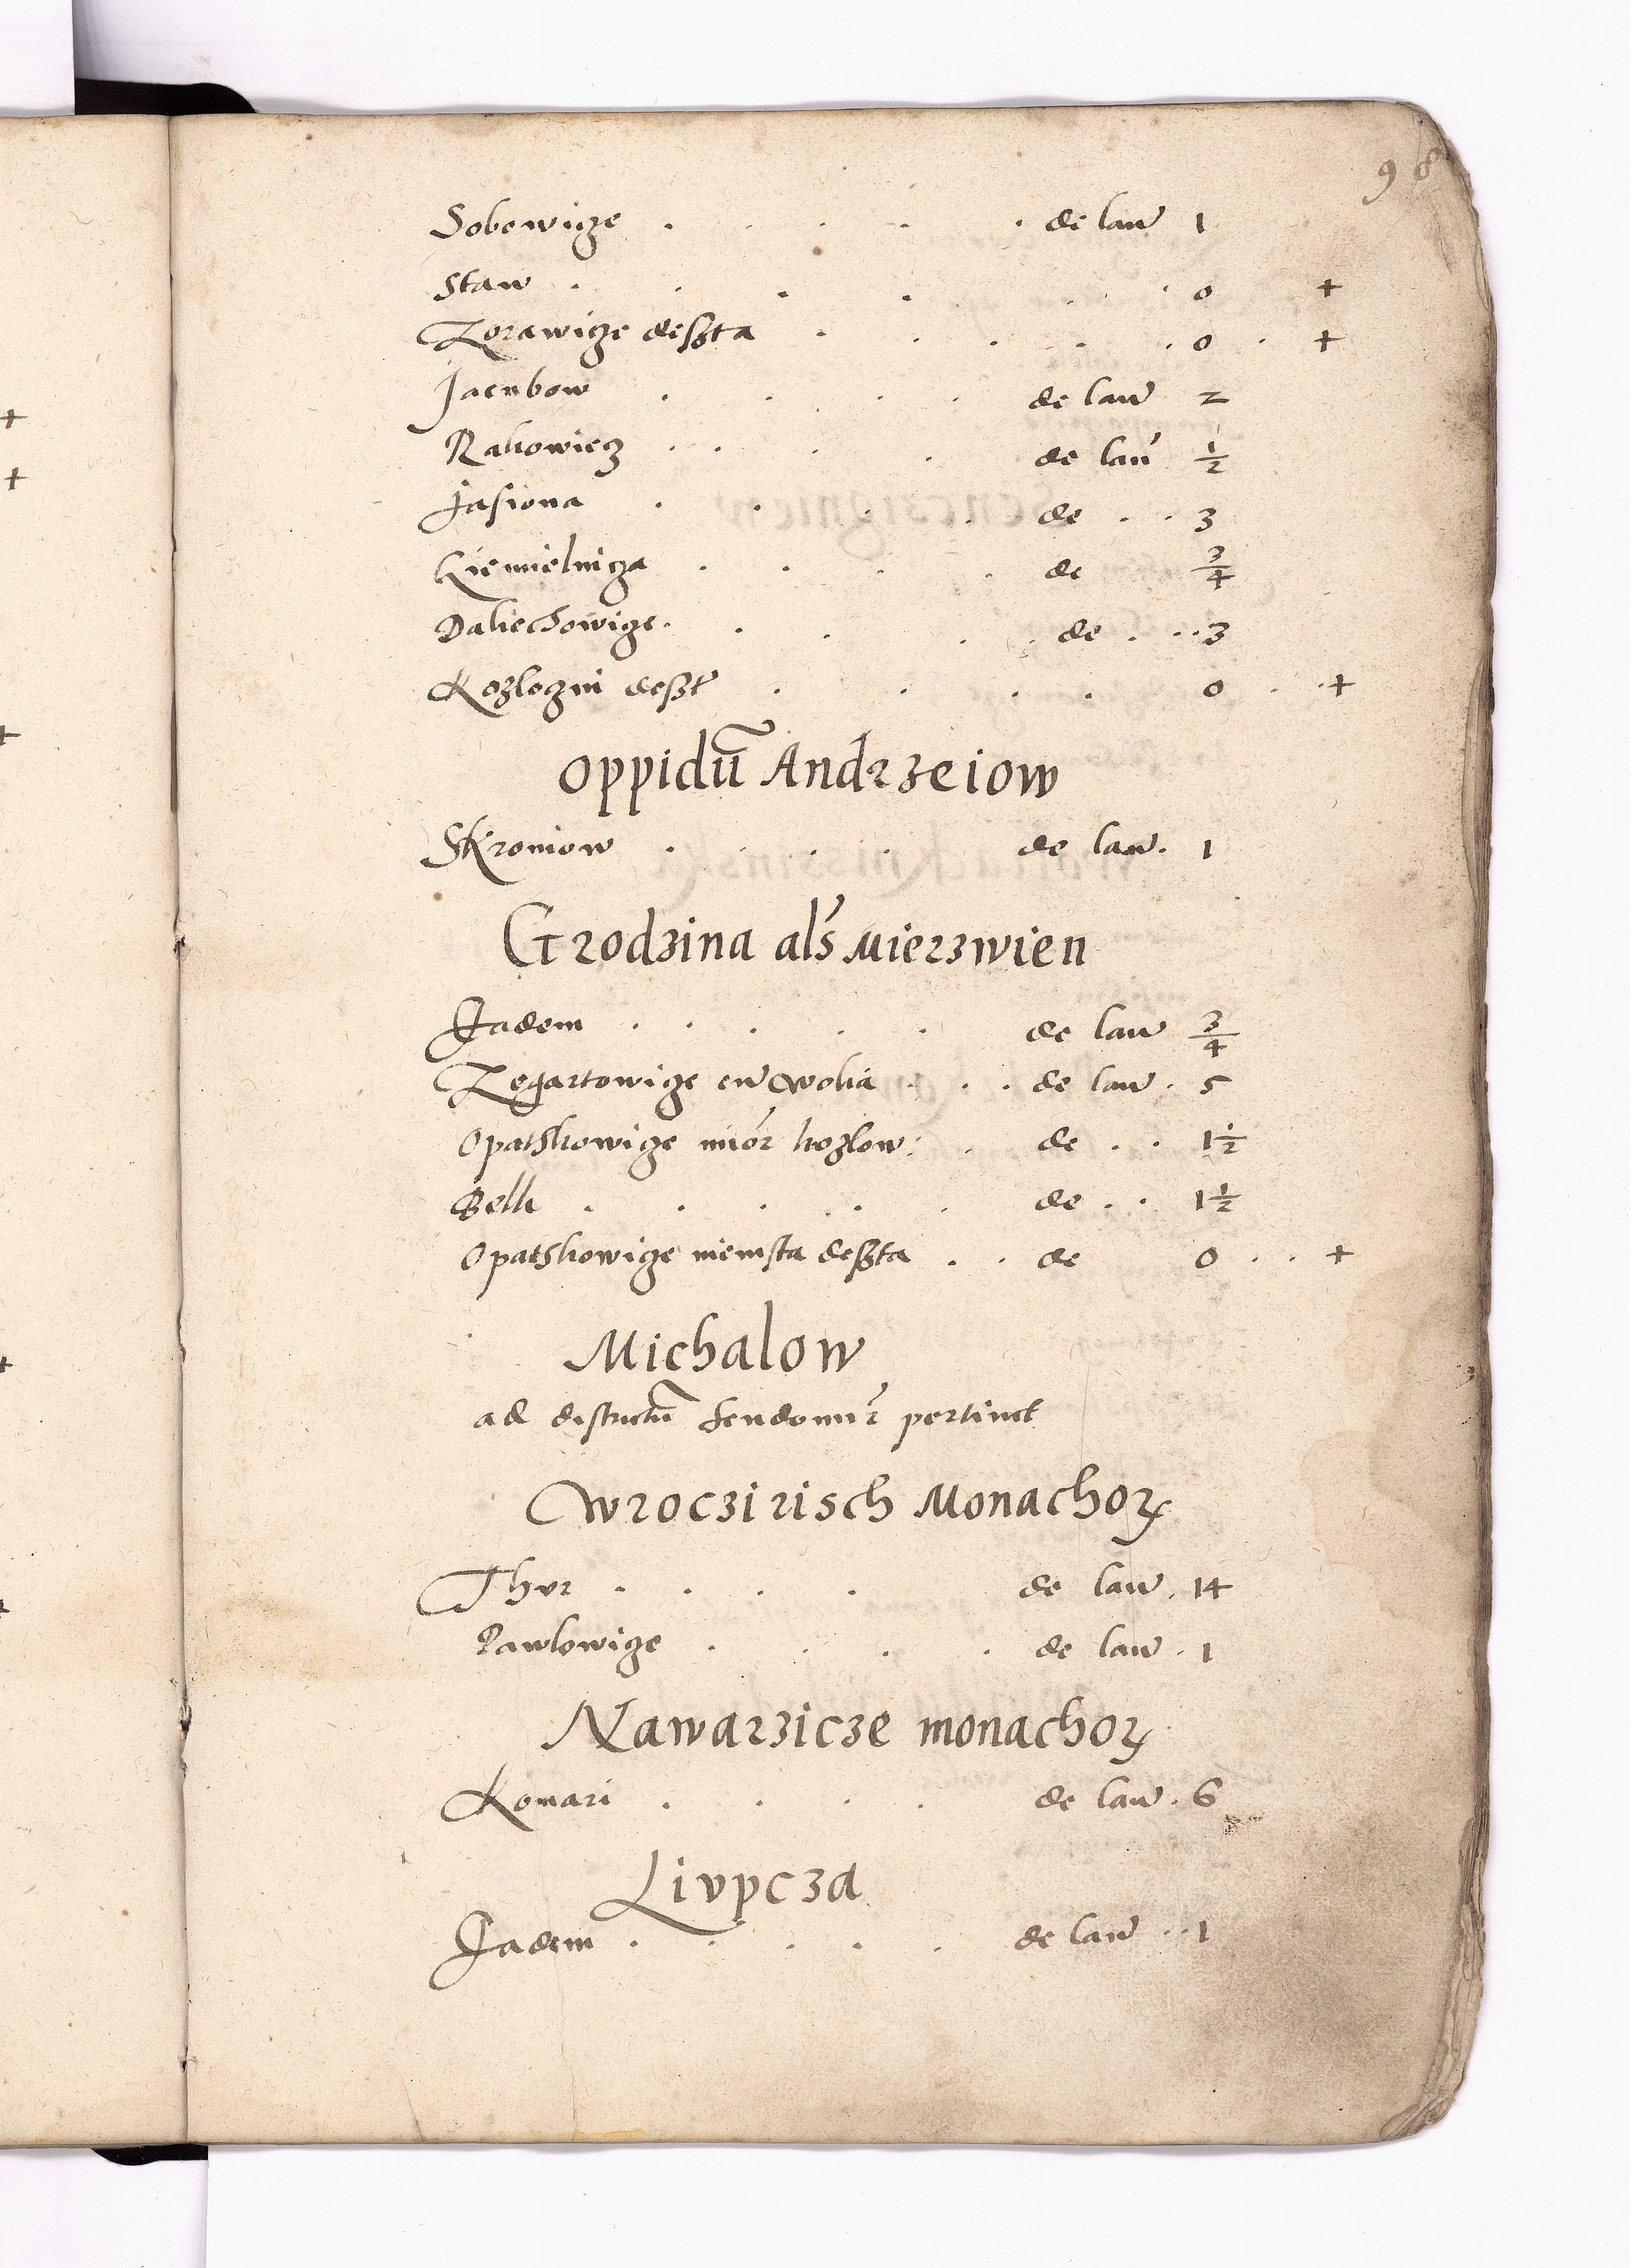 98
Sobowicze . . . . . de lan̄ 1
Staw . . . . . . . 0 +
Zorawicze desẓta . . . . . . 0 . +
Jacubow . . . . . de lan̄ 2
Rakowiecz . . . . de lan̄ ½
Jasiona . . . . de . . 3
Kiemielnicza . . . . de ¾
Dakiechowicze . . . . de . . . 3
Kozloczin desẓt̄ . . . . 0 . . +
Oppidū Andrzeiow
Skroniow . . . . de lan . 1
Grodzina als̄ Mierzwien
Jadem . . . . . de lan̄ ¾
Zegartowicze cū Wolia . . . de lan̄ . 5
Opatkowicze mior kozlow: . de . . 1½
Belk . . . . . de . . 1½
Opatkowicze niemsta desẓta . . de 0 . . +
Michalow
ad districtū Sendomir̄ pertinet
Wroczirisch Monachoꝝ
Thur . . . . de lan̄ . 14
Pawlowicze . . . . de lan̄ . 1
Nawarzicze monachoꝝ
Komari . . . . de lan̄ . 6
Liupcza
Jadem . . . . . de lan̄ . . 1